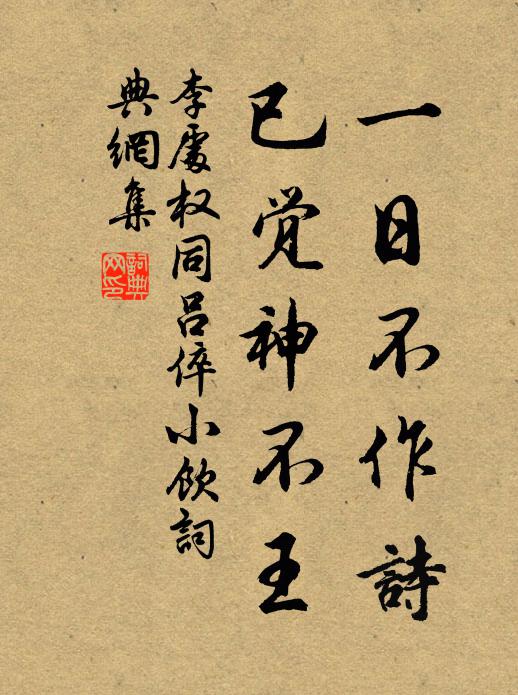 一日不作詩
已觉神不王
李處权同吕倅小飲詞
典網集
詞典网印